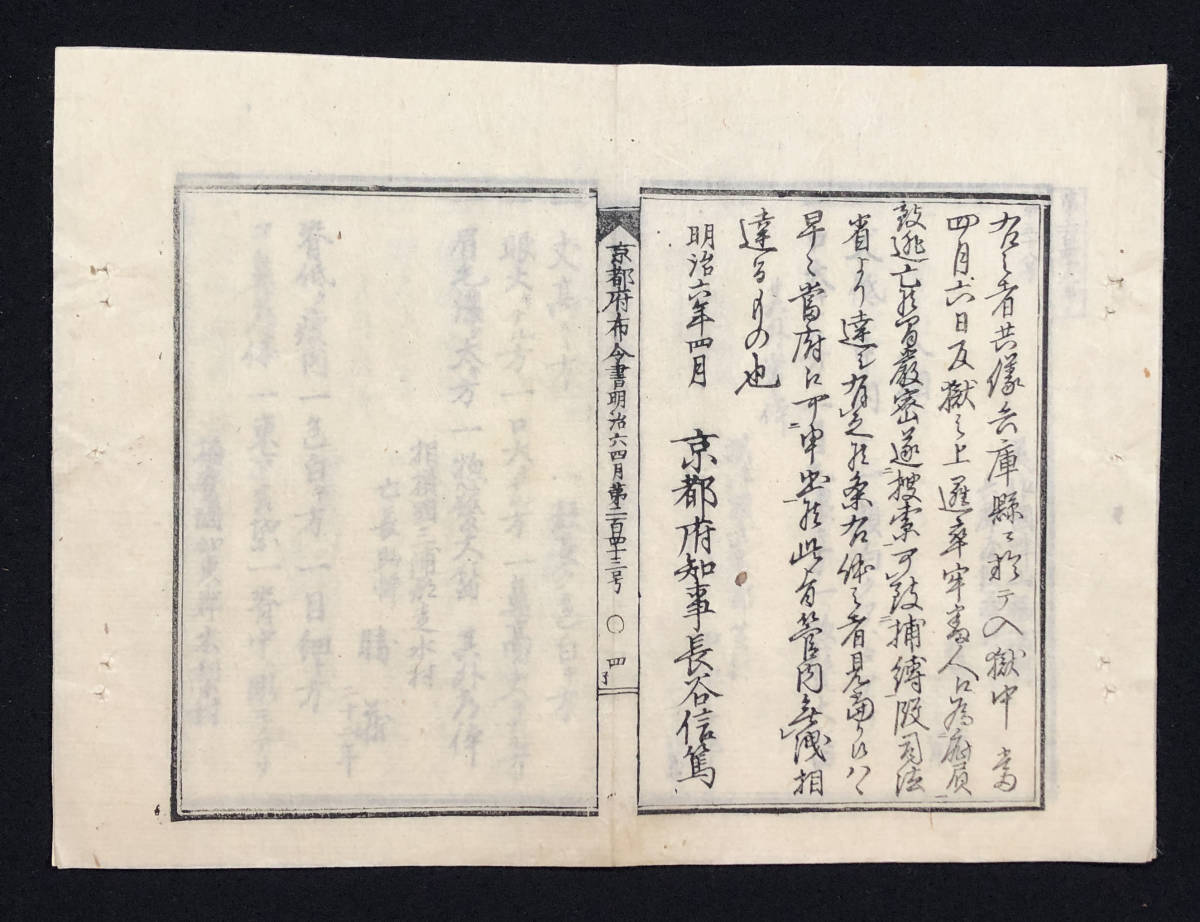 右之者共儀兵庫縣ニ於テ入獄中當
四月六日反獄之上邏卒牢番人ヲ為負
致逃亡候間厳密遂捜索可致捕縛段司法
省より達之有之候条右体之者見當り候ハヽ
早々當府江可申出候此旨管内無洩相
達るもの也
明治六年四月 京都府知事長谷信篤
京都府布令書明治六四月第二百四十三号 〇 四了